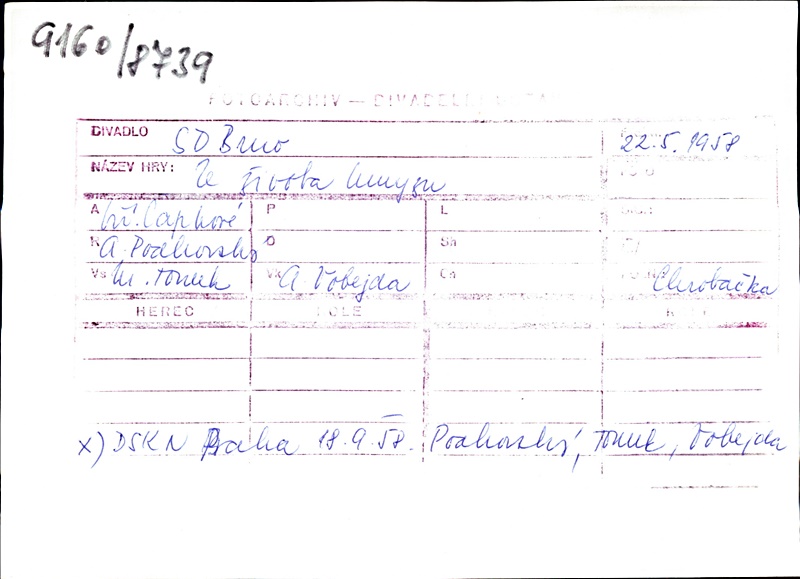 9160/8739
FOTOARCHIV — DIVADELNÍ ÚSTAV
DIVADLO SD Brno 22.5.1958
NÁZEV HRY: Ze života hmyzu
A bř. Čapkové P L
R A. Podhorský D Sh
Vs M. Tomek Vk A. Vobejda Ch Chrobačka
HEREC ROLE
x) DSKN Praha 18.9.58. Podhorský, Tomek, Vobejda